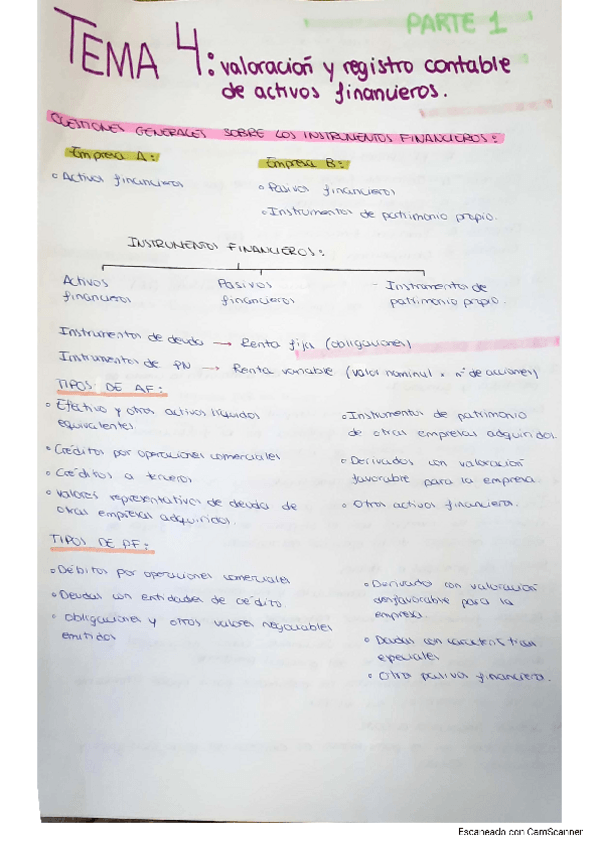 PARTE 1
TEMA 4: valoración y registro contable
de activos financieros.
CUESTIONES GENERALES SOBRE LOS INSTRUMENTOS FINANCIEROS:
Empresa A:
Empresa B:
Activos financieros
Pasivos financieros
Instrumentos de patrimonio propio.
INSTRUMENTOS FINANCIEROS:
Activos
financieros
Pasivos
financieros
- Instrumentos de
patrimonio propio.
Instrumentos de deuda → Renta fija (obligaciones)
Instrumentos de PN → Renta variable (valor nominal × nº de acciones)
TIPOS DE AF:
Efectivo y otros activos líquidos
equivalentes.
Créditos por operaciones comerciales
Créditos a terceros
Valores representativos de deuda de
otras empresas adquiridos.
Instrumentos de patrimonio
de otras empresas adquiridos.
Derivados con valoración
favorable para la empresa
Otros activos financieros.
TIPOS DE PF:
Débitos por operaciones comerciales
Deudas con entidades de crédito.
obligaciones y otros valores negociables
emitidos
Derivados con valoración
desfavorable para la
empresa.
Deudas con características
especiales
Otros pasivos financieros.
Escaneado con CamScanner